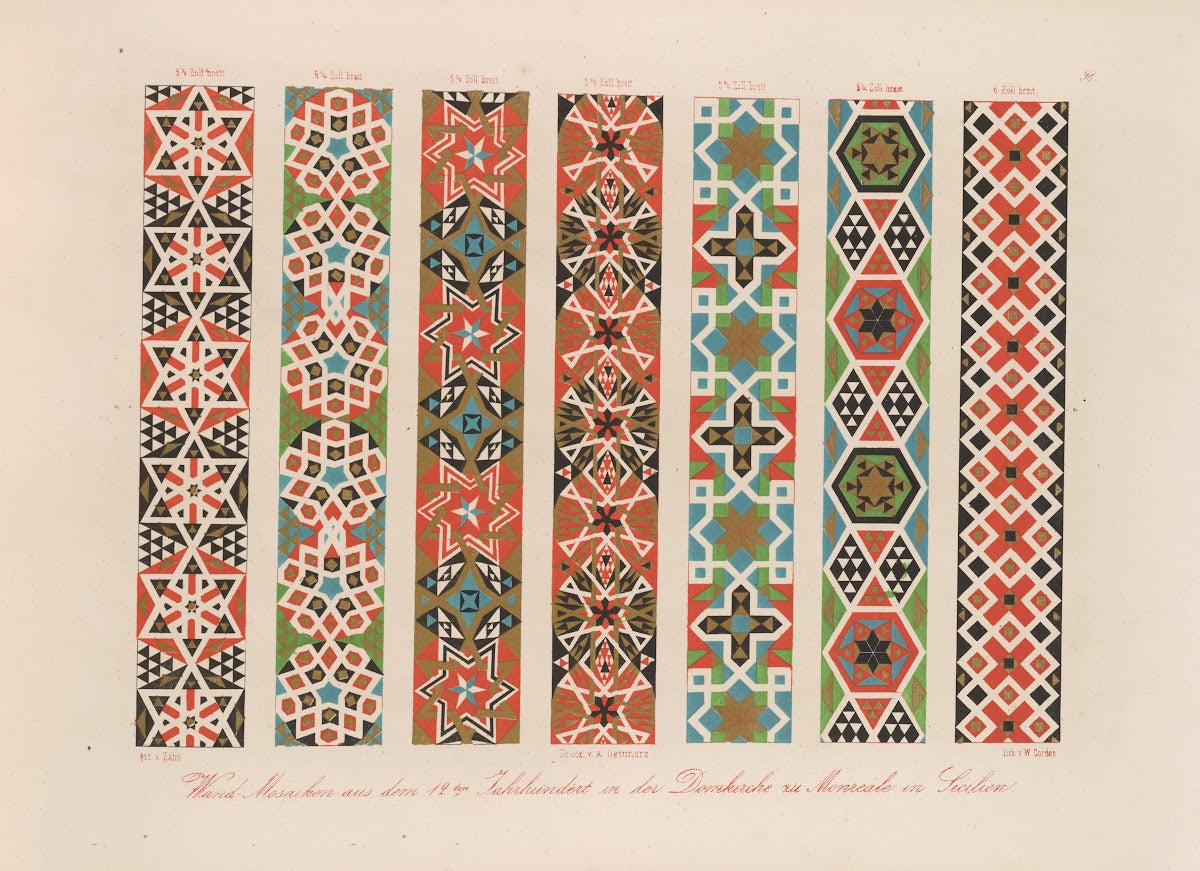 98.
5 ¾ Zoll breit
6 ¼ Zoll breit
5 ½ Zoll breit
5 ½ Zoll breit
5 ¾ Zoll breit
5 ¾ Zoll breit
6 Zoll breit
gez. v. Zahn
Druck. v. A. Dettmers
lith. v. W. Cordes
Wand-Mosaiken aus dem 12 ten Jahrhundert in der Domkirche zu Monreale in Sicilien.